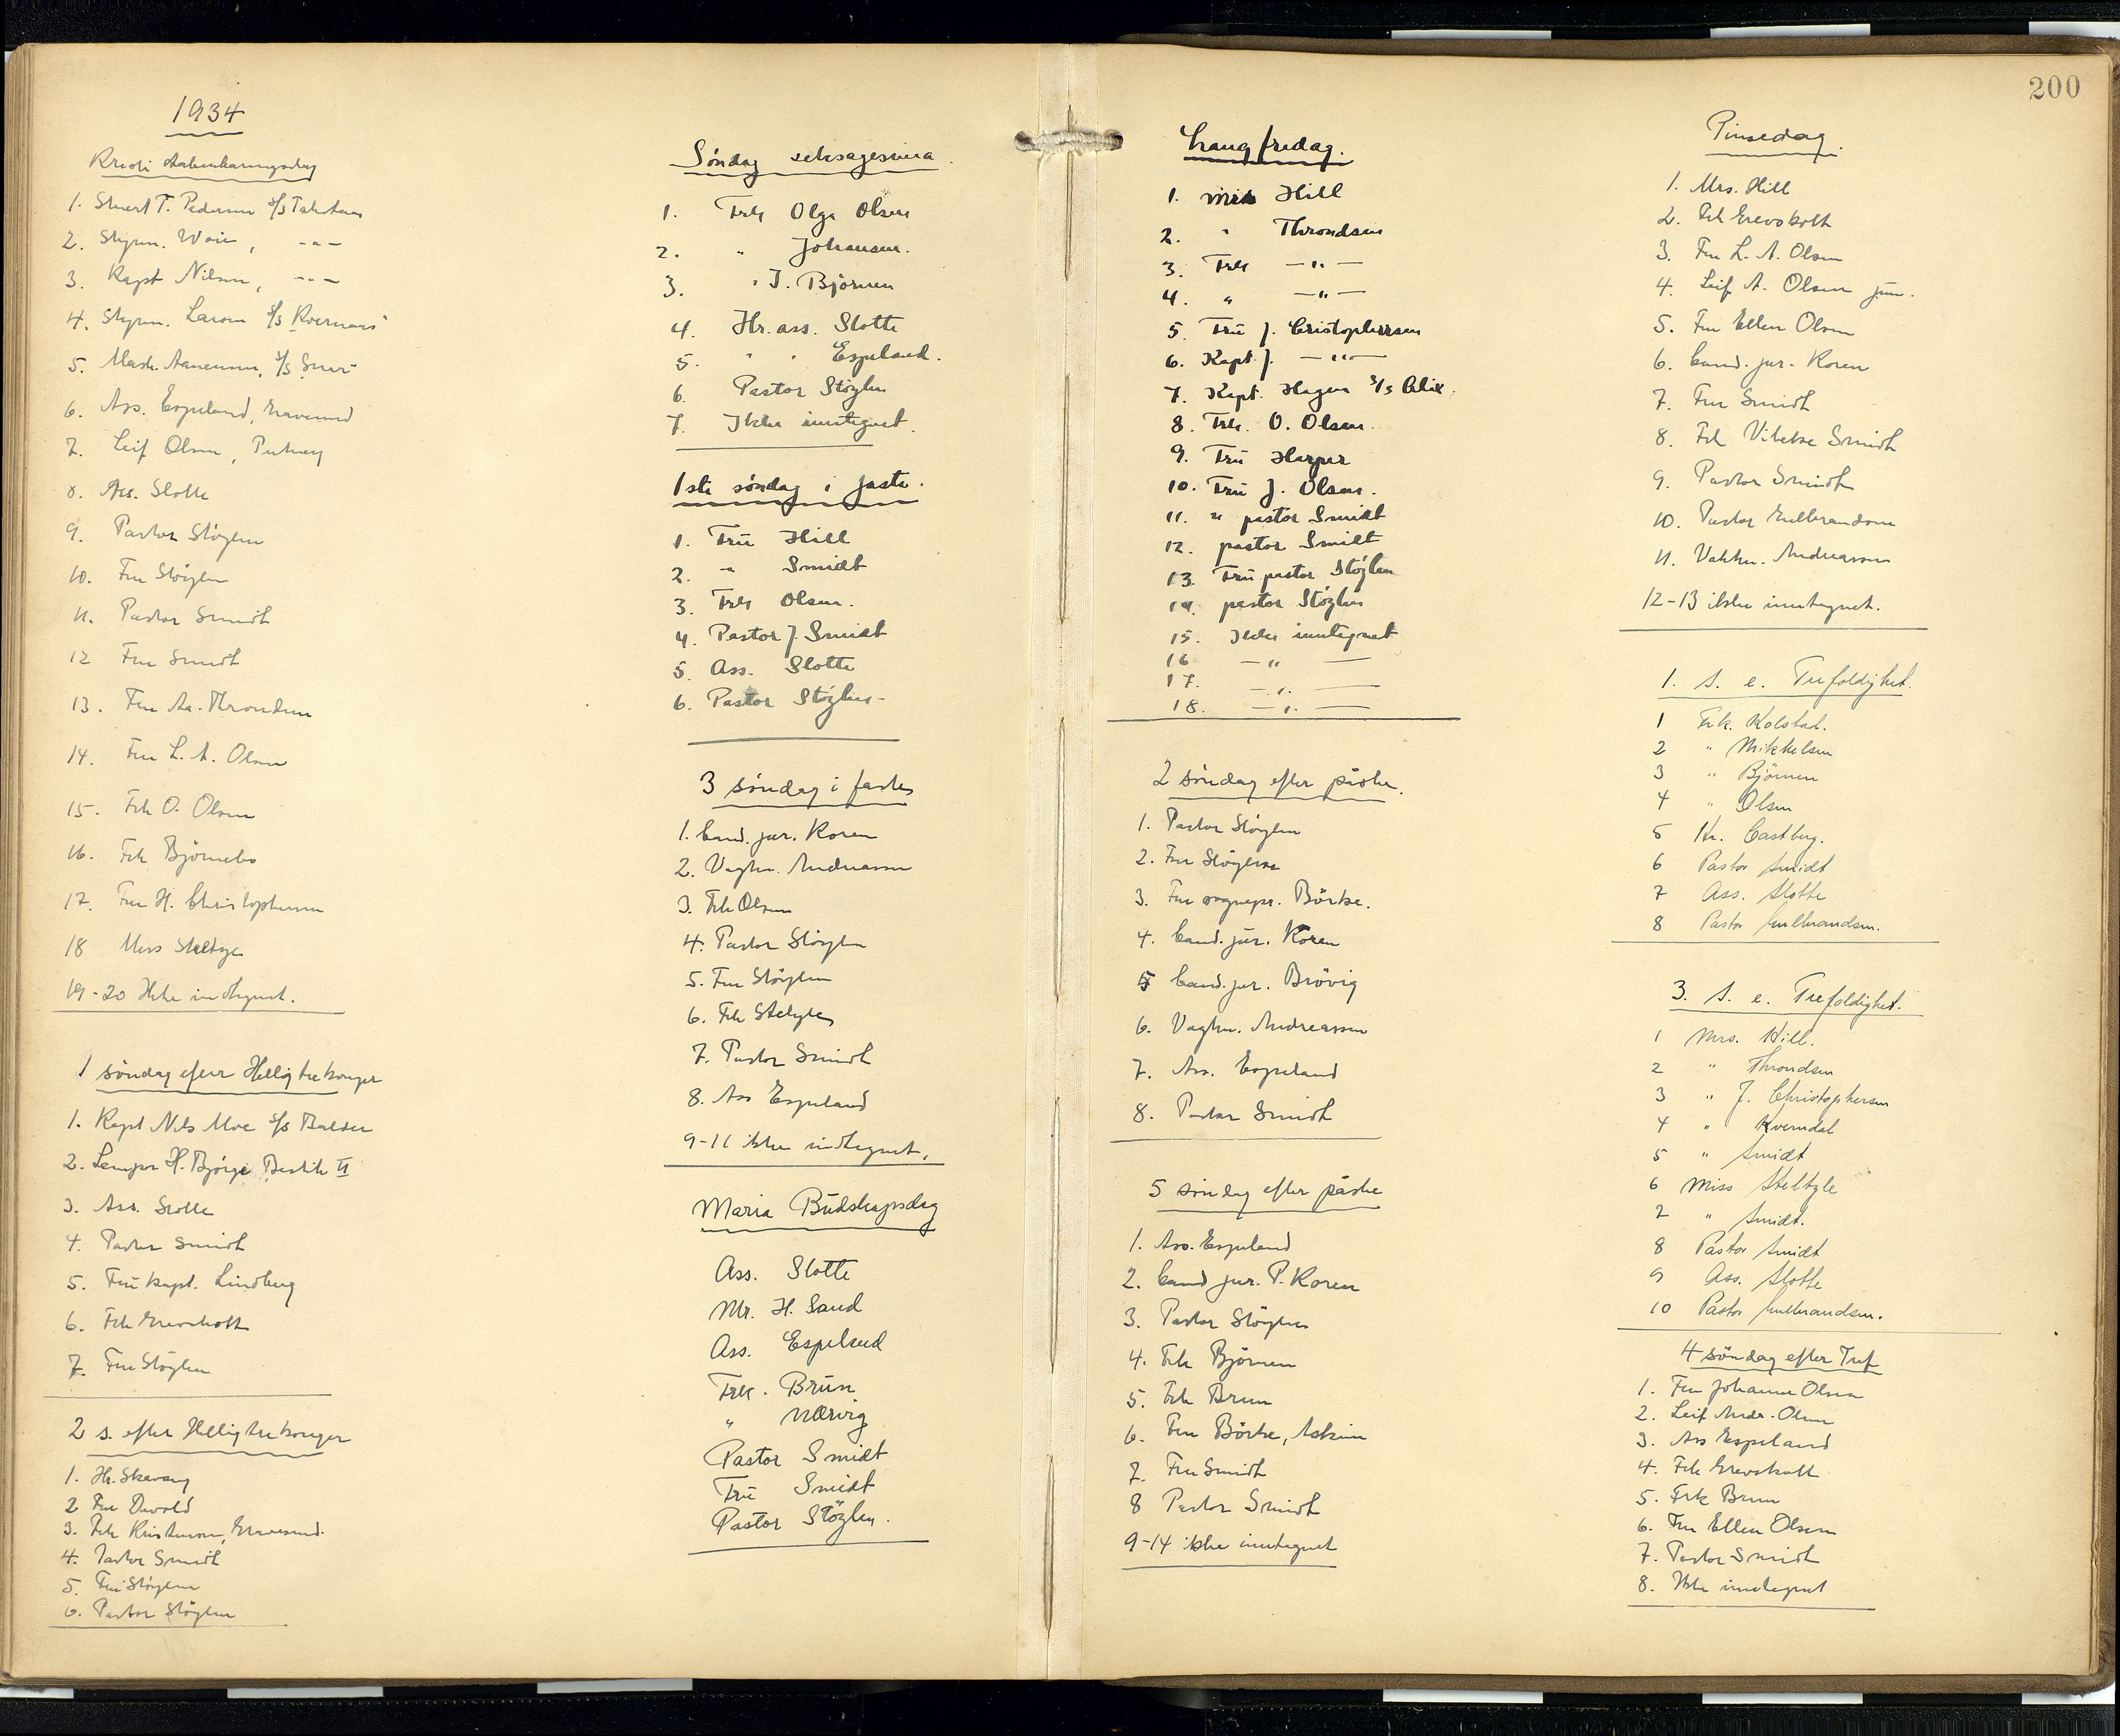 1934
Kristi Aabenbaringsdag
1. Stuert T. Pedersen S/S
2. Styrm. Woie, -"-
3. Kapt Nilsen, -"-
4. Styrm. Larsen S/S
5. Mask. S/S
6. Ass. Espeland, Gravesend
7. Leif Olsen, Putney
8. Ass. Slotte
9. Pastor Støylen
10. Fru Støylen
11. Pastor Smidt
12 Fru Smidt
13. Fru Aa. Throndsen
14. Fru L. A. Olsen
15. Frk O. Olsen
16. Frk Björnebo
17. Fru H. Christophersen
18 Miss Steltzle
19-20 Ikke indtegnet.
1 søndag efter Hellig tre konger
1. Kapt Nils Moe S/S Balder
2. H. Bjørge II
3. Ass. Slotte
4. Pastor Smidt
5. Fru kapt. Lindberg
6. Frk Grevskott
7. Fru Støylen
2 s. efter Hellig tre konger
1. Hr. Skavang
2 Fru Devold
3. Frk Kristensen, Gravesend.
4. Pastor Smidt
5. Fru Støylen
6. Pastor Støylen
Søndag seksagesima.
1. Frk Olga Olsen
2. " Johansen.
3. " J. Björnen
4. Hr. ass. Slotte
5. " " Espeland.
6. Pastor Støylen
7. Ikke inntegnet.
1ste søndag i faste.
1. Fru Hill
2. " Smidt
3. Frk Olsen.
4. Pastor J. Smidt
5. Ass. Slotte
6. Pastor Støylen
3 søndag i faste
1. Cand. jur. Koren
2. Vagtm. Andreassen
3. Frk Olsen
4. Pastor Støylen
5. Fru Støylen
6. Frk Steltzle
7. Pastor Smidt
8. Ass Espeland
9-11 ikke indtegnet.
Maria Budskapsdag
Ass. Slotte
Mr. H. Sand
Ass. Espeland
Frk. Brun
" Nærvig
Pastor Smidt
Fru Smidt
Pastor Støylen.
200
Langfredag.
1. Mrs Hill
2. " Throndsen
3. Frk -"-
4. " -"-
5. Fru J. Cristophersen
6. Kapt. J. -"-
7. Kapt. Hagen S/S Alix.
8. Frk. O. Olsen.
9. Fru Harper
10. Fru J. Olsen.
11. " pastor Smidt
12. pastor Smidt
13. Fru pastor Støylen
14. pastor Støylen
15. Ikke inntegnet
16 -"-
17. -"-
18. -"-
2 søndag efter påske.
1. Pastor Støylen
2. Fru Støylen
3. Fru sognepr. Börke.
4. Cand. jur. Koren
5 Cand. jur. Brövig
6. Vagtm. Andreassen
7. Ass. Espeland
8. Pastor Smidt
5 søndag efter påske
1. Ass. Espeland
2. Cand jur. P. Koren
3. Pastor Støylen
4. Frk Björnen
5. Frk Brun
6. Fru Börke, Askim
7. Fru Smidt
8 Pastor Smidt
9-14 ikke inntegnet
Pinsedag.
1. Mrs. Hill
2. Frk Grevskott
3. Fru L. A. Olsen
4. Leif A. Olsen jun.
5. Fru Ellen Olsen
6. Cand. jur. Koren
7. Fru Smidt
8. Frk Vibeke Smidt
9. Pastor Smidt
10. Pastor Gulbrandsen
11. Vaktm. Andreassen
12-13 ikke inntegnet.
1. S. e. Trefoldighet.
1 Frk. Kolstad.
2 " Mikkelsen
3 " Björnen
4 " Olsen
5 Hr. Castberg.
6 Pastor Smidt
7 Ass. Slotte
8 Pastor Gulbrandsen.
3. S. e. Trefoldighet.
1 Mrs. Hill.
2 " Throndsen
3 " J. Christophersen
4 " Kverndal
5 " Smidt
6 Miss Steltzle
7 " Smidt.
8 Pastor Smidt
9 Ass. Slotte
10 Pastor Gulbrandsen.
4 søndag efter Tref
1. Fru Johanna Olsen
2. Leif Andr. Olsen
3. Ass Espeland
4. Frk Grevskott
5. Frk Brun
6. Fru Ellen Olsen
7. Pastor Smidt
8. Ikke inntegnet